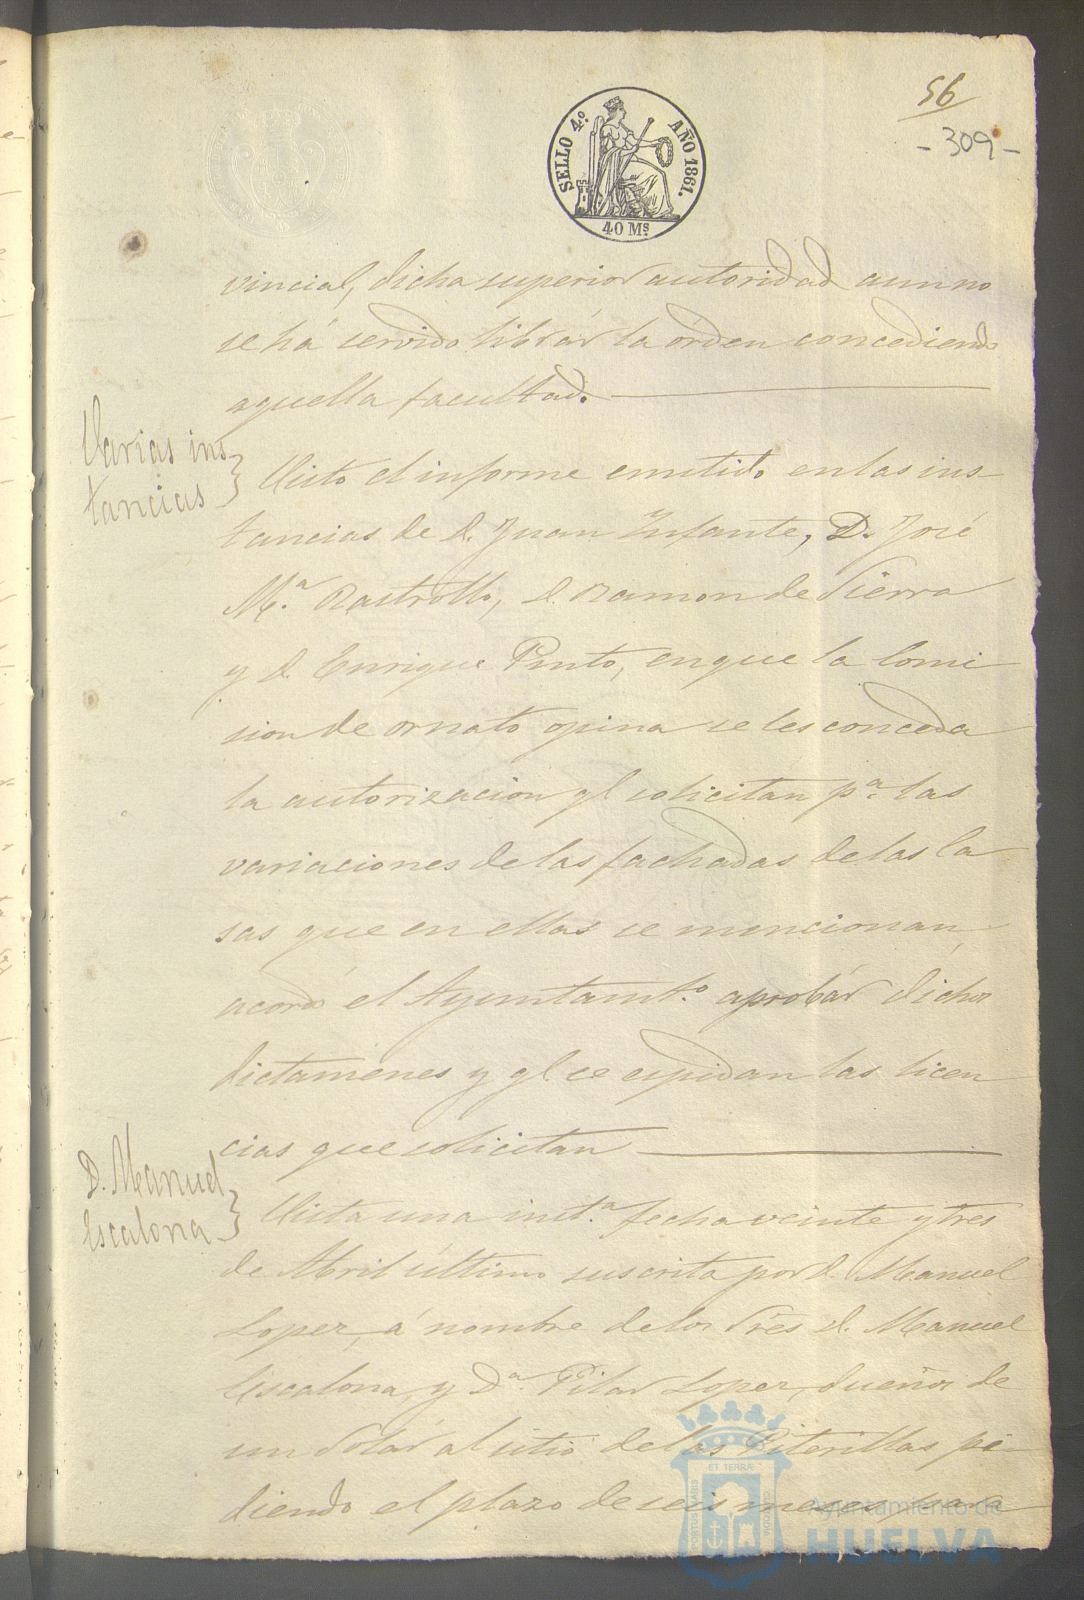 56
- 309 -
SELLO 4.º AÑO 1861.
40 Ms.
vincial, dicha superior autoridad aun no
se há servido librár la órden concediendo
aquella facultad.
Varias ins
tancias
Visto el informe emitido en las ins-
tancias de D. Juan Infante, D. José
M.ª Rastrollo, D. Ramon de Sierra
y D. Enrique Pinto, en que la Comi
sion de ornato opina se les conceda
la autorizacion ql solicitan p.ª las
variaciones de las fachadas de las Ca
sas que en ellas se mencionan,
acordó el Ayuntamt.º aprobár dichos
dictamenes y ql se espidan las licen
cias que solicitan
D. Manuel
Escalona
Vista una inst.ª fecha veinte y tres
de Abril último suscrita por D. Manuel
Lopez, á nombre de los Sres D. Manuel
Escalona, y D.ª Pilar Lopez, dueños de
un Solár al sitio de las Piterillas pi-
diendo el plazo de seis meses para
PORTUS MARIS ET TERRÆ CUSTODIA
Ayuntamiento de
HUELVA